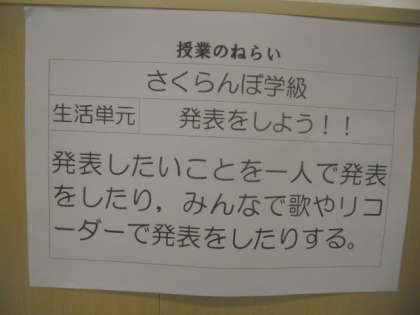 授業のねらい
さくらんぼ学級
生活単元 発表をしよう！！
発表したいことを一人で発表
をしたり，みんなで歌やリコ
ーダーで発表をしたりする。